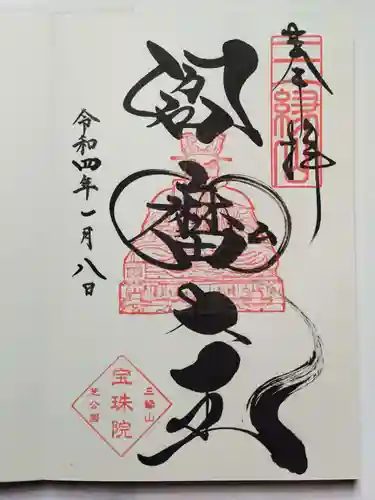 奉拝
閻魔大王
令和四年一月八日
三縁山
宝珠院
芝公園